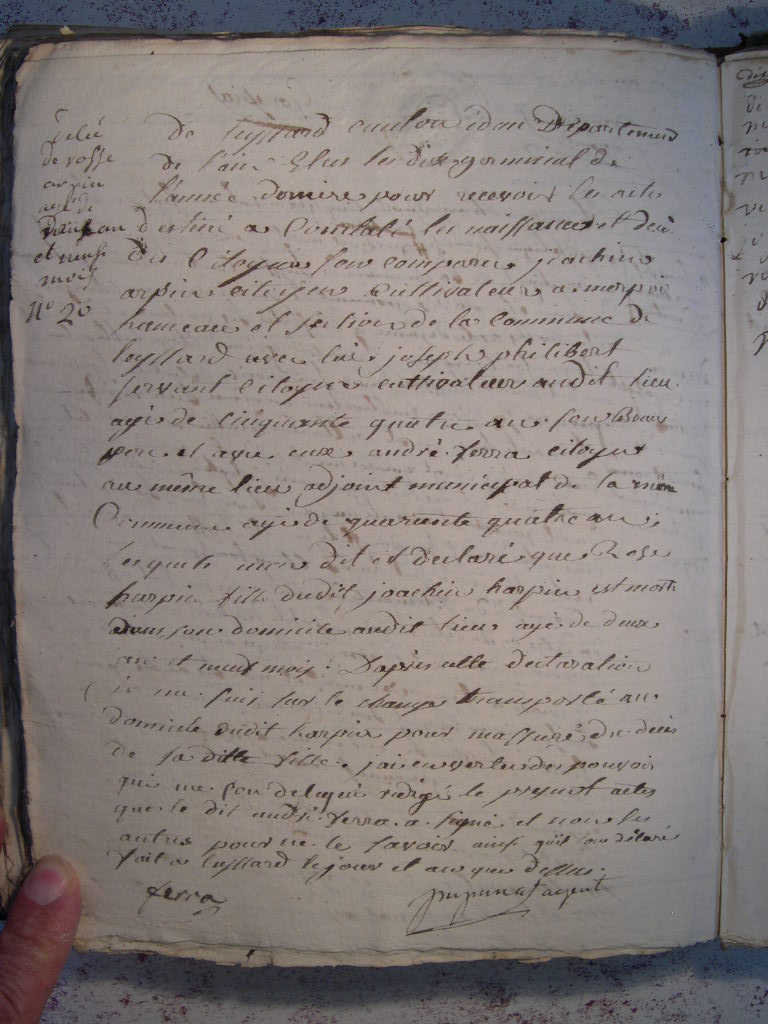 de rosse
arpin
agé de
deux an
et neuf
mois
N° 20
de Leyssard canton idem Departement
de l'ain Elus les dix germinial de
l'année derniere pour recevoir les actes
destiné a Constaté les naissances et decè
des Citoyens sont comparu joachin
arpin citoyen Cultivateur a
hameau et section de la Commune de
leyssard avec lui joseph philibert
servant Citoyen cultivateur audit lieu
agé de Cinquante quatre an son Beau
pere et avec eux andré ferra citoyen
au même lieu adjoint municipal de la même
Commune agé de quarante quatre an
lesquels mon dit et declaré que Rose
harpin fille dudit joachin harpin est morte
dans son domicile audit lieu agé de deux
an et neuf mois. D'apres cette declaration
je me suis sur le champ transporté au
domicile dudit harpin pour massuré du decès
de sa ditte fille. jai en vertu des pouvoir
qui me son delegué redigé le present actes
que le dit andré ferra a signé et non les
autres pour ne le savoir ainsi qu'il ont declaré
fait a Leyssard le jour et an que dessus.
ferra